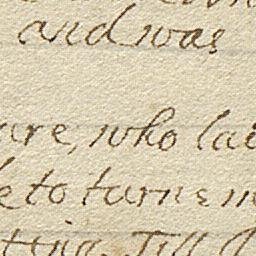 and was
are, who la
e to turne m
ting. Till